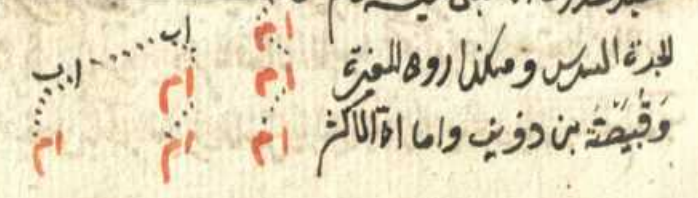 للجدة السدس وهكذا رواه المغيرة
وَقُبَيْصَة بن ذويب واما
ام
اب
ام
ام
اب
ام
ام
ام